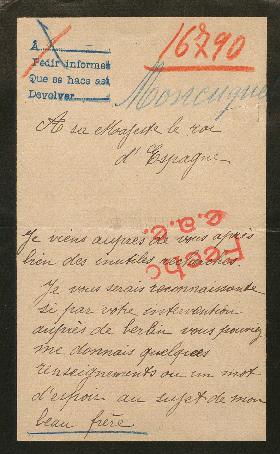 A
Pedir informes
Que se hace así
Devolver
16790
A sa Majesté le roi
d'Espagne
Je viens auprès de vous après
bien des inutiles recherches.
Je vous serais reconnaissante
si par votre intervention
auprès de berlin vous pouviez
me donnais quelques
renseignements ou un mot
d'espoir au sujet de mon
beau frère